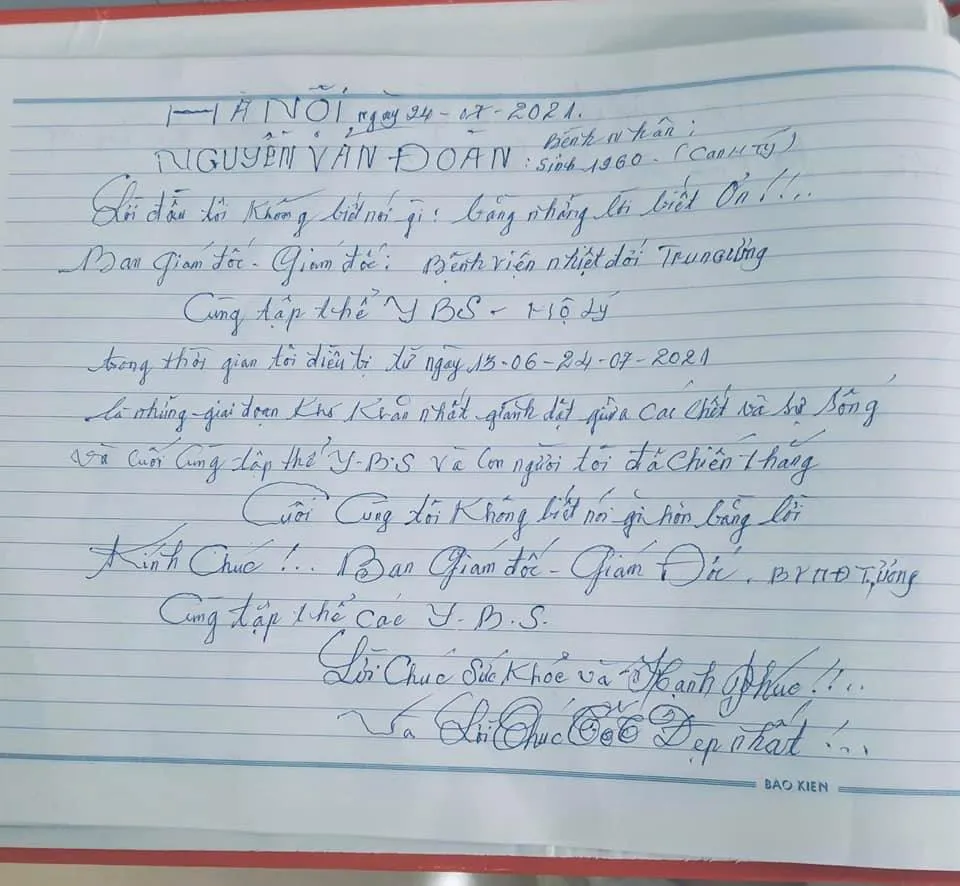 HÀ NỖI ngày 24-07-2021.
NGUYỄN VĂN ĐOÀN : Bệnh nhân : Sinh 1960 - (CanH Tý)
Lời đầu tôi không biết nói gì : bằng nhằng lời biết Ơn!!...
Ban Giám đốc - Giám đốc : Bệnh viện nhiệt đới Trung ương
Cùng tập thể Y BS - Hộ Lý
trong thời gian tôi điều trị từ ngày 13-06-24-07-2021
là những giai đoạn khó khăn nhất giành dật giữa các chết và sự sống
và cuối cùng tập thể Y-B-S và con người tôi đã chiến thắng
Cuối Cùng tôi không biết nói gì hơn bằng lời
Kính Chúc!... Ban Giám đốc - Giám Đốc. BVNĐ T,Ương
Cùng tập thể các Y-B.S.
Lời Chúc Sức Khỏe và Hạnh Phúc!!...
Và Lời Chúc Tốt Đẹp nhất!...
BAO KIEN